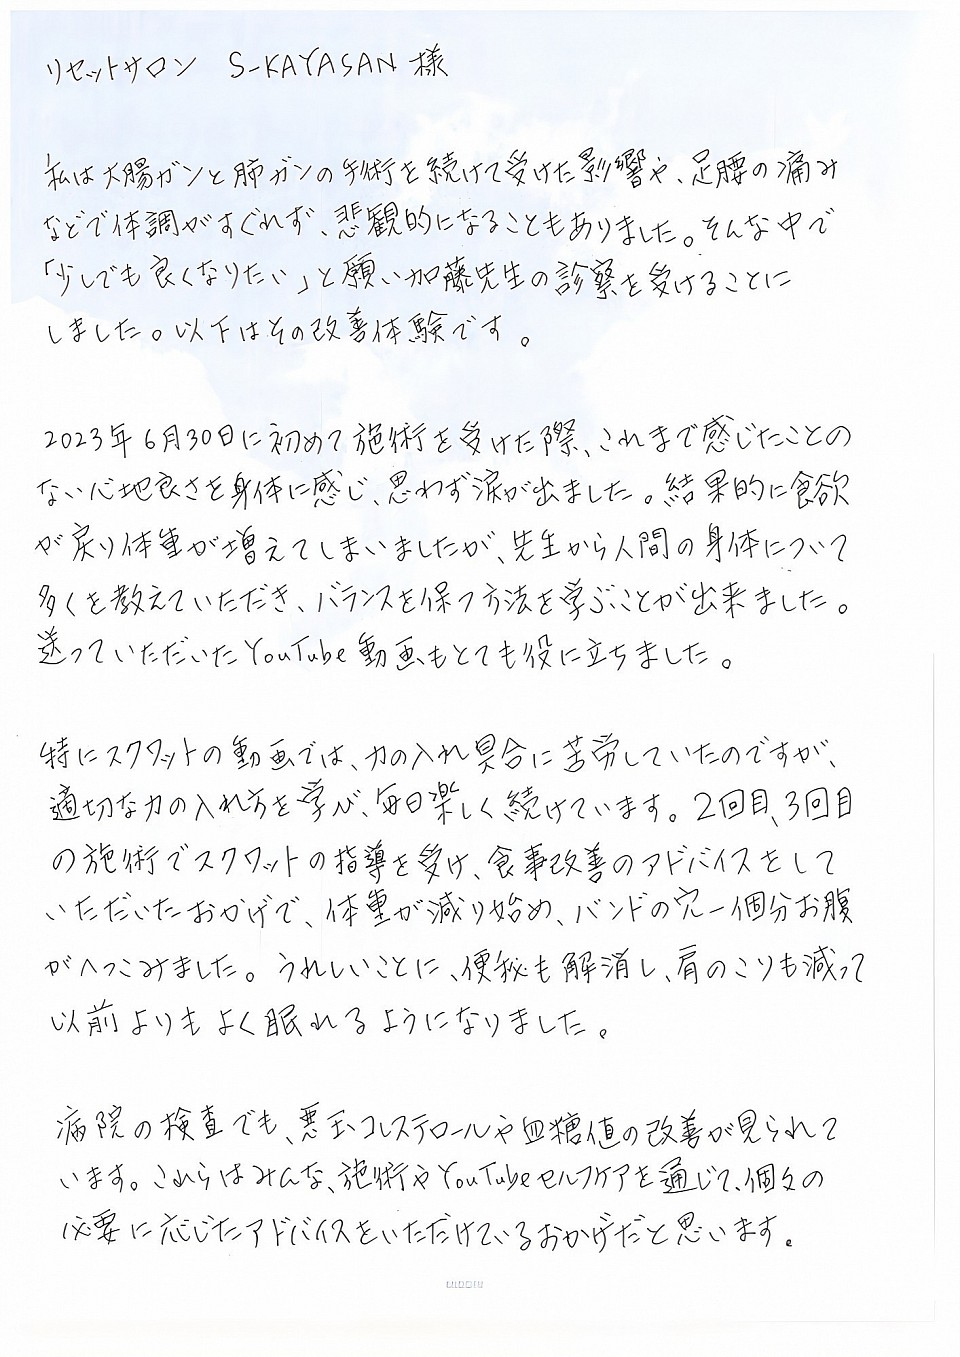 リセットサロン S-KAYASAN 様
私は大腸ガンと肺ガンの手術を続けて受けた影響や、足腰の痛み
などで体調がすぐれず、悲観的になることもありました。そんな中で
「少しでも良くなりたい」と願い加藤先生の診察を受けることに
しました。以下はその改善体験です。
2023年6月30日に初めて施術を受けた際、これまで感じたことの
ない心地良さを身体に感じ、思わず涙が出ました。結果的に食欲
が戻り体重が増えてしまいましたが、先生から人間の身体について
多くを教えていただき、バランスを保つ方法を学ぶことが出来ました。
送っていただいたYouTube動画もとても役に立ちました。
特にスクワットの動画では、力の入れ具合に苦労していたのですが、
適切な力の入れ方を学び、毎日楽しく続けています。2回目、3回目
の施術でスクワットの指導を受け、食事改善のアドバイスをして
いただいたおかげで、体重が減り始め、バンドの穴一個分お腹
がへっこみました。うれしいことに、便秘も解消し、肩のこりも減って
以前よりもよく眠れるようになりました。
病院の検査でも、悪玉コレステロールや血糖値の改善が見られて
います。これらはみんな、施術やYouTubeセルフケアを通じて、個々の
必要に応じたアドバイスをいただけているおかげだと思います。